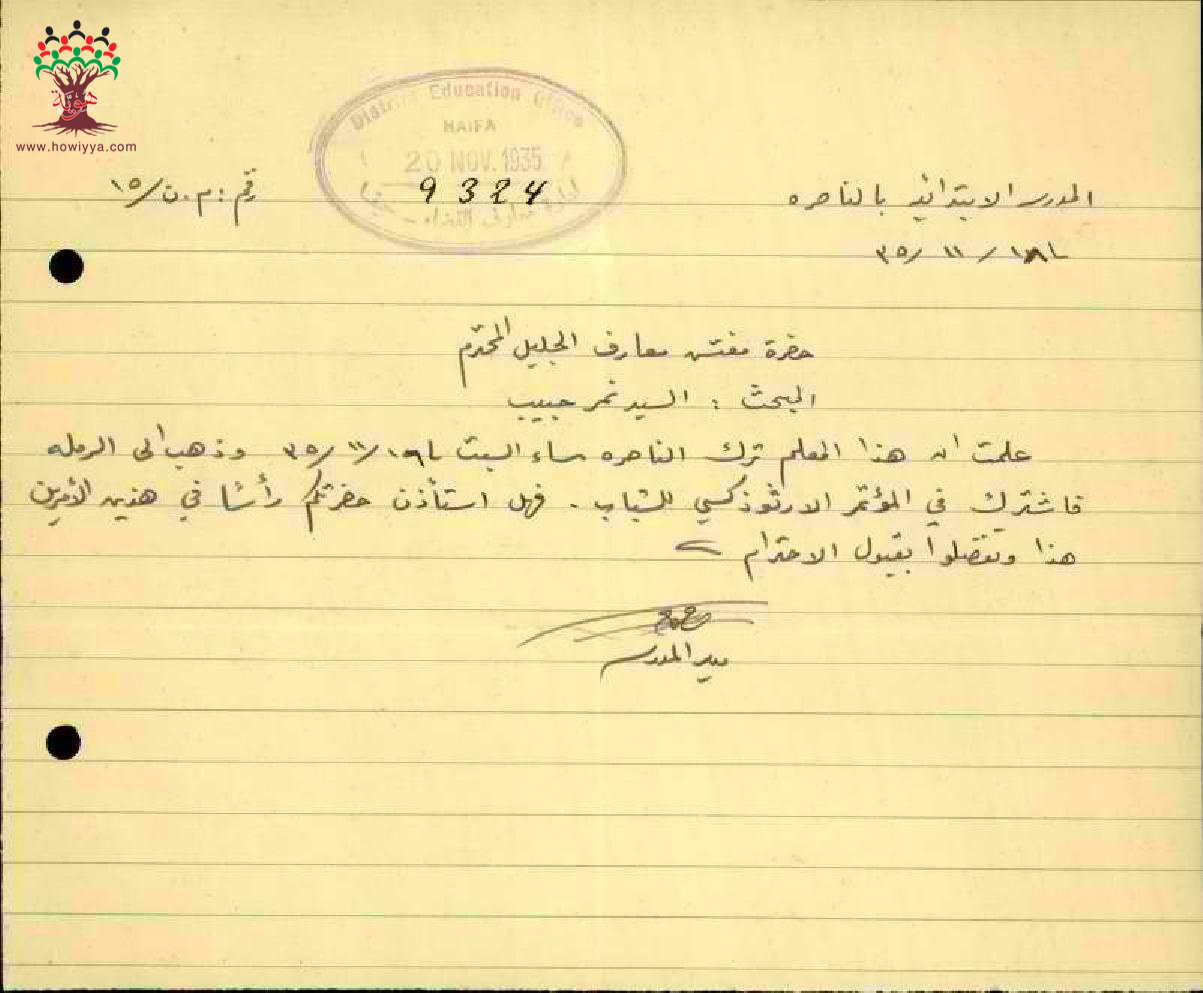 هوية
www.howiyya.com
District Education Office
HAIFA
20 NOV. 1935
9324
ادارة معارف القضاء - حيفا
رقم : م.ن/١٥
المدرسة الابتدائية بالناصره
٣٥/ ١١ /
حضرة مفتش معارف الجليل المحترم
البحث : السيد نمر حبيب
علمت ان هذا المعلم ترك الناصره مساء السبت ٣٥/١١/ وذهب الى الرمله
فاشترك في المؤتمر الارثوذكسي للشباب . فهل استأذن حضرتكم رأسًا في هذين الأمرين
هذا وتفضلوا بقبول الاحترام
مدير المدرسة